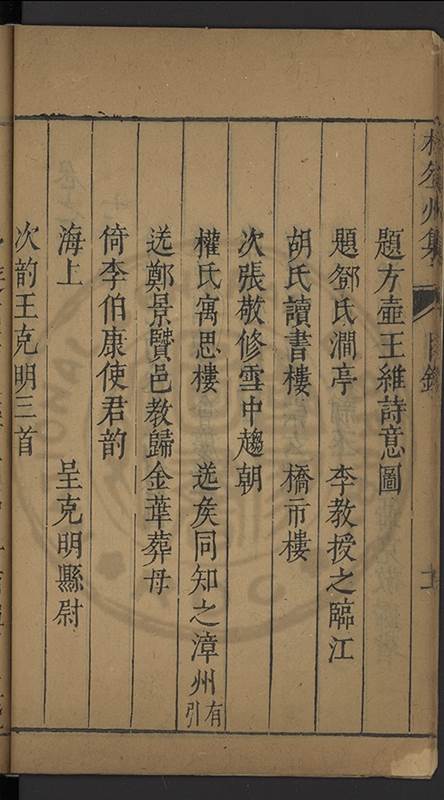 題方壺王維詩意圖
題鄧氏澗亭　李教授之臨江
胡氏讀書樓　橋市樓
次張敬修雪中趨朝
權氏寓思樓　送矦同知之漳州有引
送鄭景賢邑教歸金華葬母
倚李伯康使君韵
海上　呈克明縣尉
次韵王克明三首